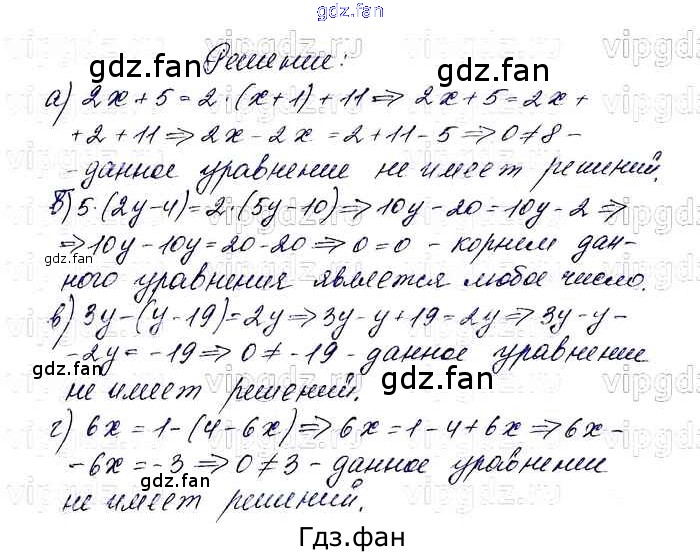 gdz.fan
Решение:
а) 2x+5=2·(x+1)+11⇒2x+5=2x+
+2+11⇒2x-2x=2+11-5⇒0≠8-
-данное уравнение не имеет решений.
б) 5·(2y-4)=2·(5y-10)⇒10y-20=10y-2⇒
⇒10y-10y=20-20⇒0=0 - корнем дан-
ного уравнения является любое число.
в) 3y-(y-19)=2y⇒3y-y+19=2y⇒3y-y-
-2y=-19⇒0≠-19-данное уравнение
не имеет решений.
г) 6x=1-(4-6x)⇒6x=1-4+6x⇒6x-
-6x=-3⇒0≠3-данное уравнение
не имеет решений.
gdz.fan
gdz.fan
gdz.fan
gdz.fan
gdz.fan
gdz.fan
gdz.fan
Гдз.фан